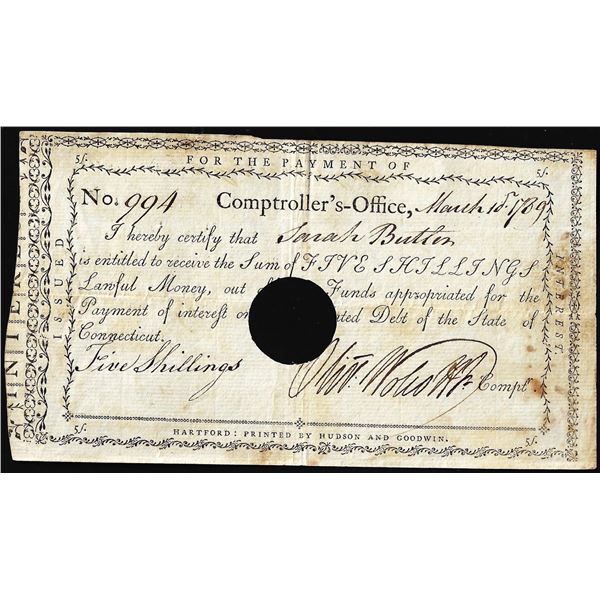 5/. FOR THE PAYMENT OF 5/.
No. 994 Comptroller's-Office, March 10th 1789
I hereby certify that Sarah Butler
is entitled to receive the Sum of FIVE SHILLINGS
Lawful Money, out Funds appropriated for the
Payment of interest on ted Debt of the State of
Connecticut.
Five Shillings Olivr. Wolcott Jr. Comptr
5/. HARTFORD: PRINTED BY HUDSON AND GOODWIN. 5/.
ISSUED
INTEREST